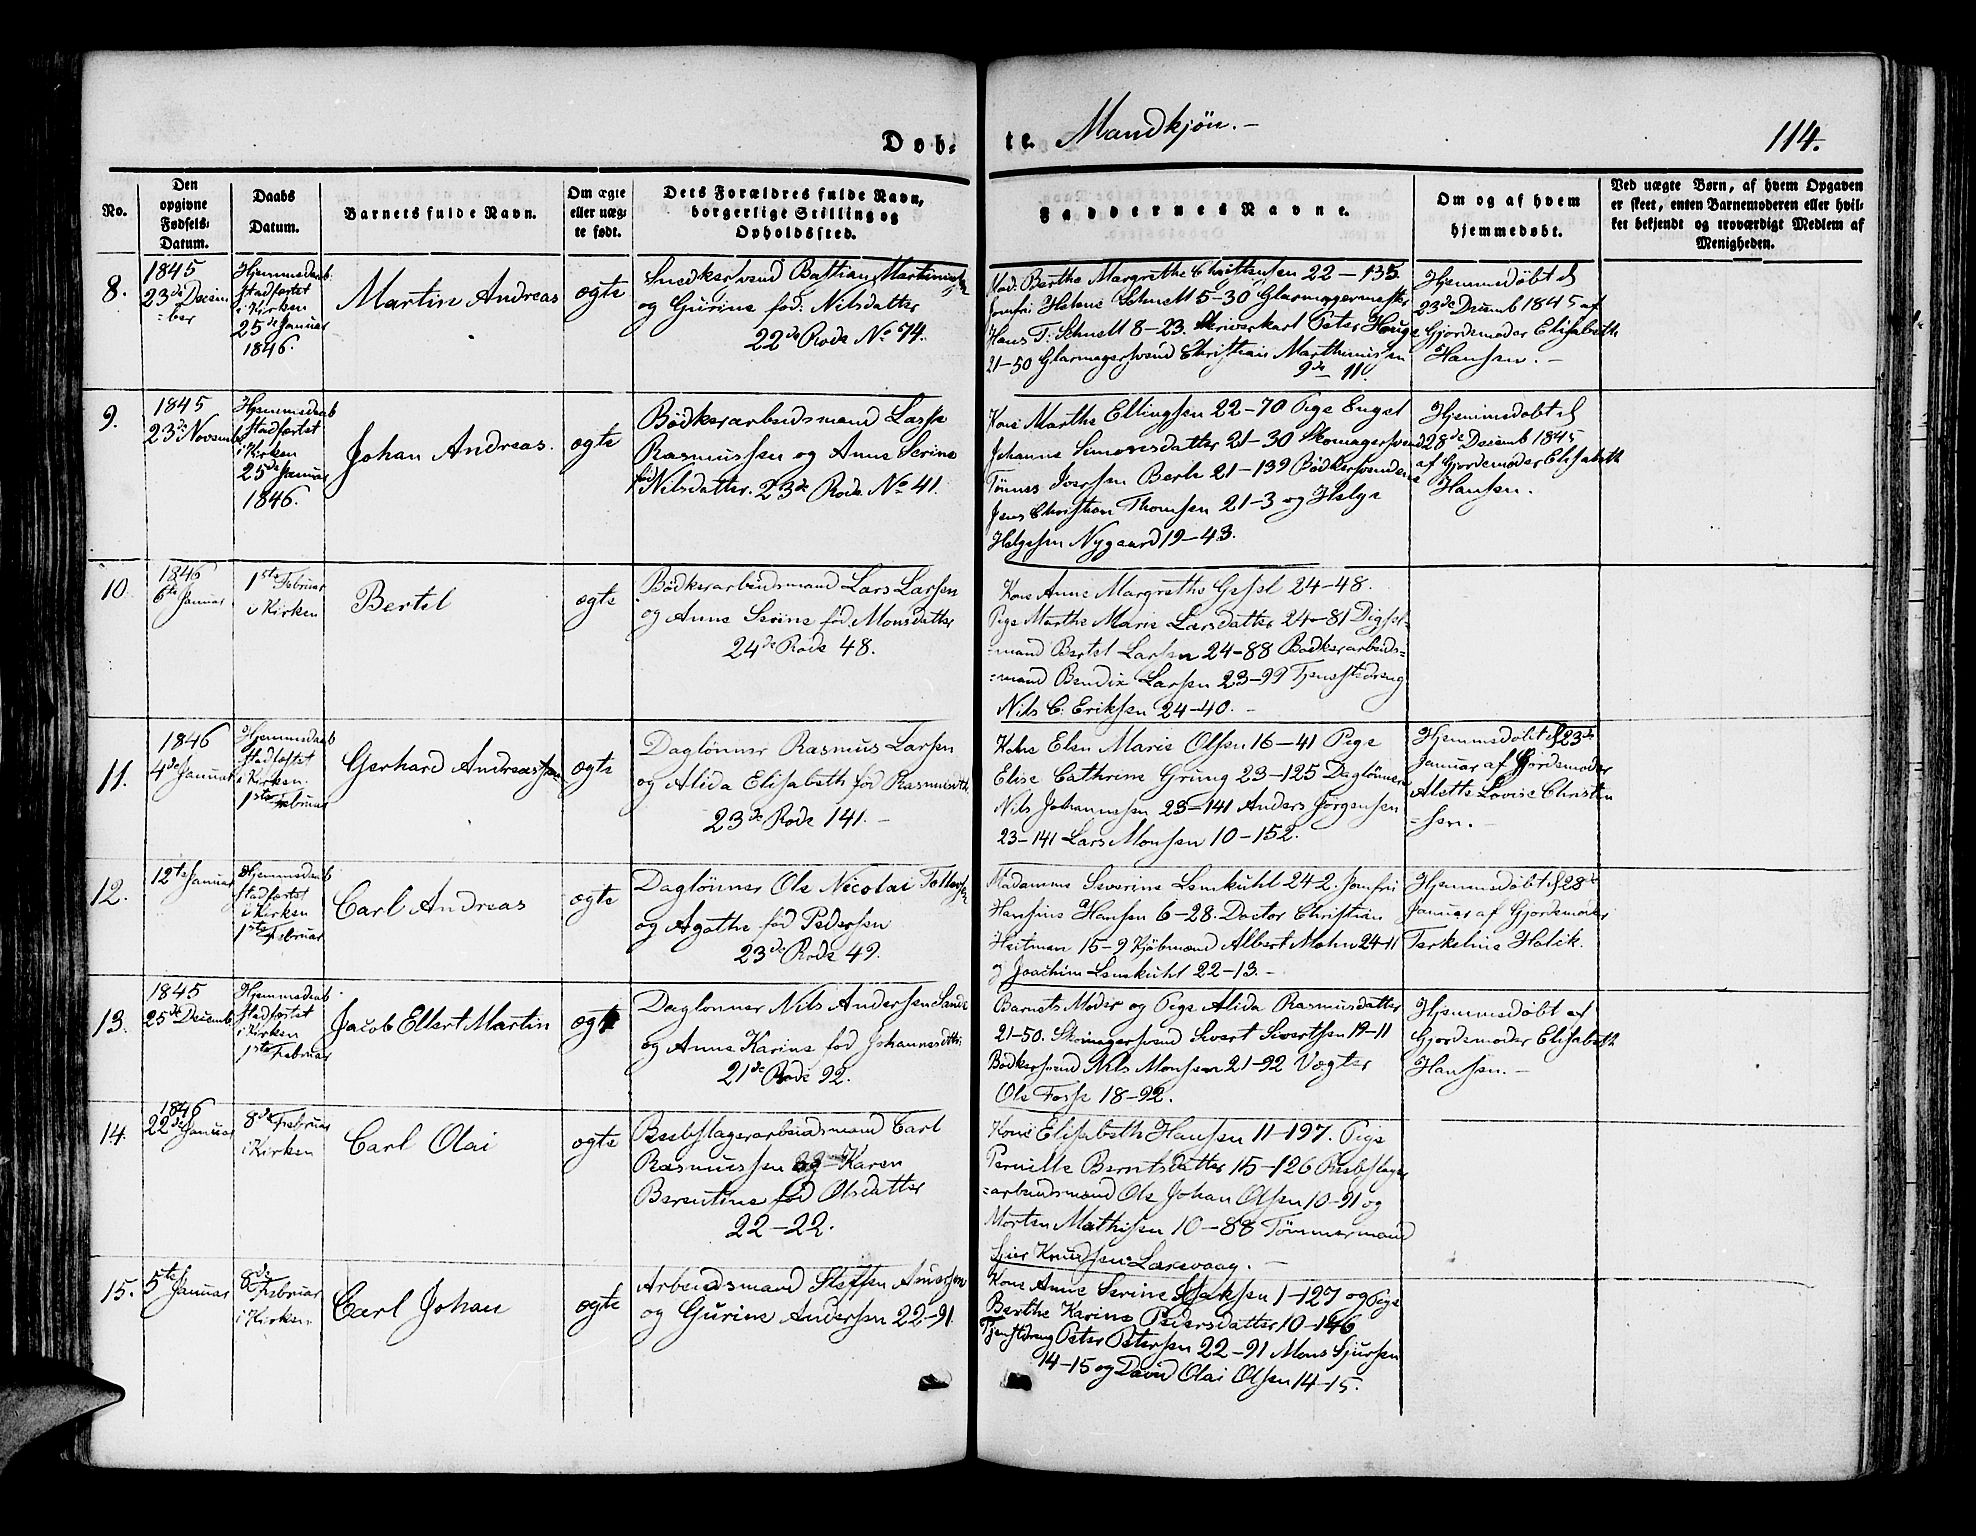 Døb- te. Mandkjön.- 114.
No.
Den opgivne Fødsels-Datum.
Daabs Datum.
Barnets fulde Navn.
Om ægte eller uæg-te født.
Dets Forældres fulde Navn, borgerlige Stilling og Opholdssted.
Faddernes Navne.
Om og af hvem hjemmedøbt.
Ved uægte Børn, af hvem Opgaven er skeet, enten Barnemoderen eller hvil-ket bekjendt og troværdigt Medlem af Menigheden.
8.
1845
23de Decem
=ber
Hjemmedaab
stadfæstet
i Kirken
25de Januar
1846.
Martin Andreas
ægte
Snedkersvend Bastian
og Gurine fød. Nilsdatter
22de Rode No 74.
Mad. Berthe Margrethe Christensen 22-135
Jomfri Helene Schnell 5-30 Glarmagermester
Hans T. Schnell 8-23. Skriverkarl Peter Houge
21-50 Glarmagersvend Christian Marthinussen
9de 11.
Hjemmedøbt d
23de Decemb 1845 af
Gjordemoder Elisabeth
Hansen.-
9.
1845
23de Novemb
Hjemmedaab
stadfæstet
i Kirken
25de Januar
1846.
Johan Andreas.
ægte
Bödkerarbeidsmand Lasse
Rasmussen og Anne Serine
fød Nilsdatter. 23de Rode No 41.
Kone Marthe Ellingsen 22-70 Pige Engel
Johanne Simonsdatter 21-30 Skomagersvend
Tønnes Iversen Berle 21-139 Bödkersvendene
Jens Christian Thomsen 21-3 og Helge
Helgesen Nygaard 19-43.
Hjemmedøbt d
28de Decemb 1845
af Gjordemoder Elisabeth
Hansen.
10.
1846
6te Januar
1ste Februar
i Kirken
Bertel
ægte
Bödkerarbeidsmand Lars Larsen
og Anne Serine fød Monsdatter
24de Rode 48.
Kone Anne Margrethe 24-48.
Pige Marthe Marie Larsdatter 24-81
=mand Bertel Larsen 24-88 Bødkerarbeids=
=mand Bendix Larsen 23-99 Tjenestedreng
Nils C. Eriksen 24-40.-
11.
1846
4de Januar
Hjemmedaab
stadfæstet
i Kirken
1ste Februar
Gerhard Andreas
ægte
Daglönner Rasmus Larsen
og Alida Elisabeth fød Rasmusdtr.
23de Rode 141.-
Kone Elen Marie Olsen 16-41 Pige
Elise Cathrine Grung 23-125 Daglönnere
Nils Johannesen 23-141 Anders Jørgensen
23-141 Lars Monsen 10-152.
Hjemmedøbt d 23de
Januar af Gjordemoder
Alette Lovise Christen
=sen.-
12.
12te Januar
Hjemmedaab
stadfæstet
i Kirken
1ste Februar
Carl Andreas
ægte
Daglönner Ole Nicolai Tollefsen
og Agathe fød Pedersen
23de Rode 49.
Madamme Severine Lemkuhl 24-2. Jomfri
Hansine Hansen 6-28. Doctor Christian
Heitman 15-9 Kjöbmand Albert Mohn 24-11
og Joachim Lemkuhl 22-13.-
Hjemmedøbt d 28de
Januar af Gjordemoder
Terkeline Halik.
13.
1845
25de Decemb
Hjemmedaab
stadfæstet
i Kirken
1ste Februar
Jacob Ellert Martin
ægte
Daglönner Nils Andersen Sande
og Anne Karine fød Johannesdtr.
21de Rode 92.
Barnets Moder og Pige Alida Rasmusdatter
21-50. Skomagersvend Sivert Sivertsen 19-11
Bödkersvend Nils Monsen 21-92 Vægter
Ole Fosse 18-92.
Hjemmedøbt af
Gjordemoder Elisabeth
Hansen.-
14.
1846
22de Januar
8de Februar
i Kirken
Carl Olai
ægte
Reebslagerarbeidsmand Carl
Rasmussen og Karen
Berentine fød Olsdatter
22-22.
Kone Elisabeth Hansen 11-197. Pige
Pernille Berntsdatter 15-126 Reebslager
=arbeidsmand Ole Johan Olsen 10-91 og
Morten Mathisen 10-88 Tömmermand
Sjur Knudsen Laxevaag.-
15.
5te Januar
8de Februar
i Kirken
Carl Johan
ægte
Arbeidsmand Steffen
og Gurine Andersen 22-91.
Kone Anne Serine 1-127 og Pige
Berthe Karine Pedersdatter 10-146
Tjenstdreng Peter Petersen 22-91 Mons Sjursen
14-15 og David Olai Olsen 14-15.